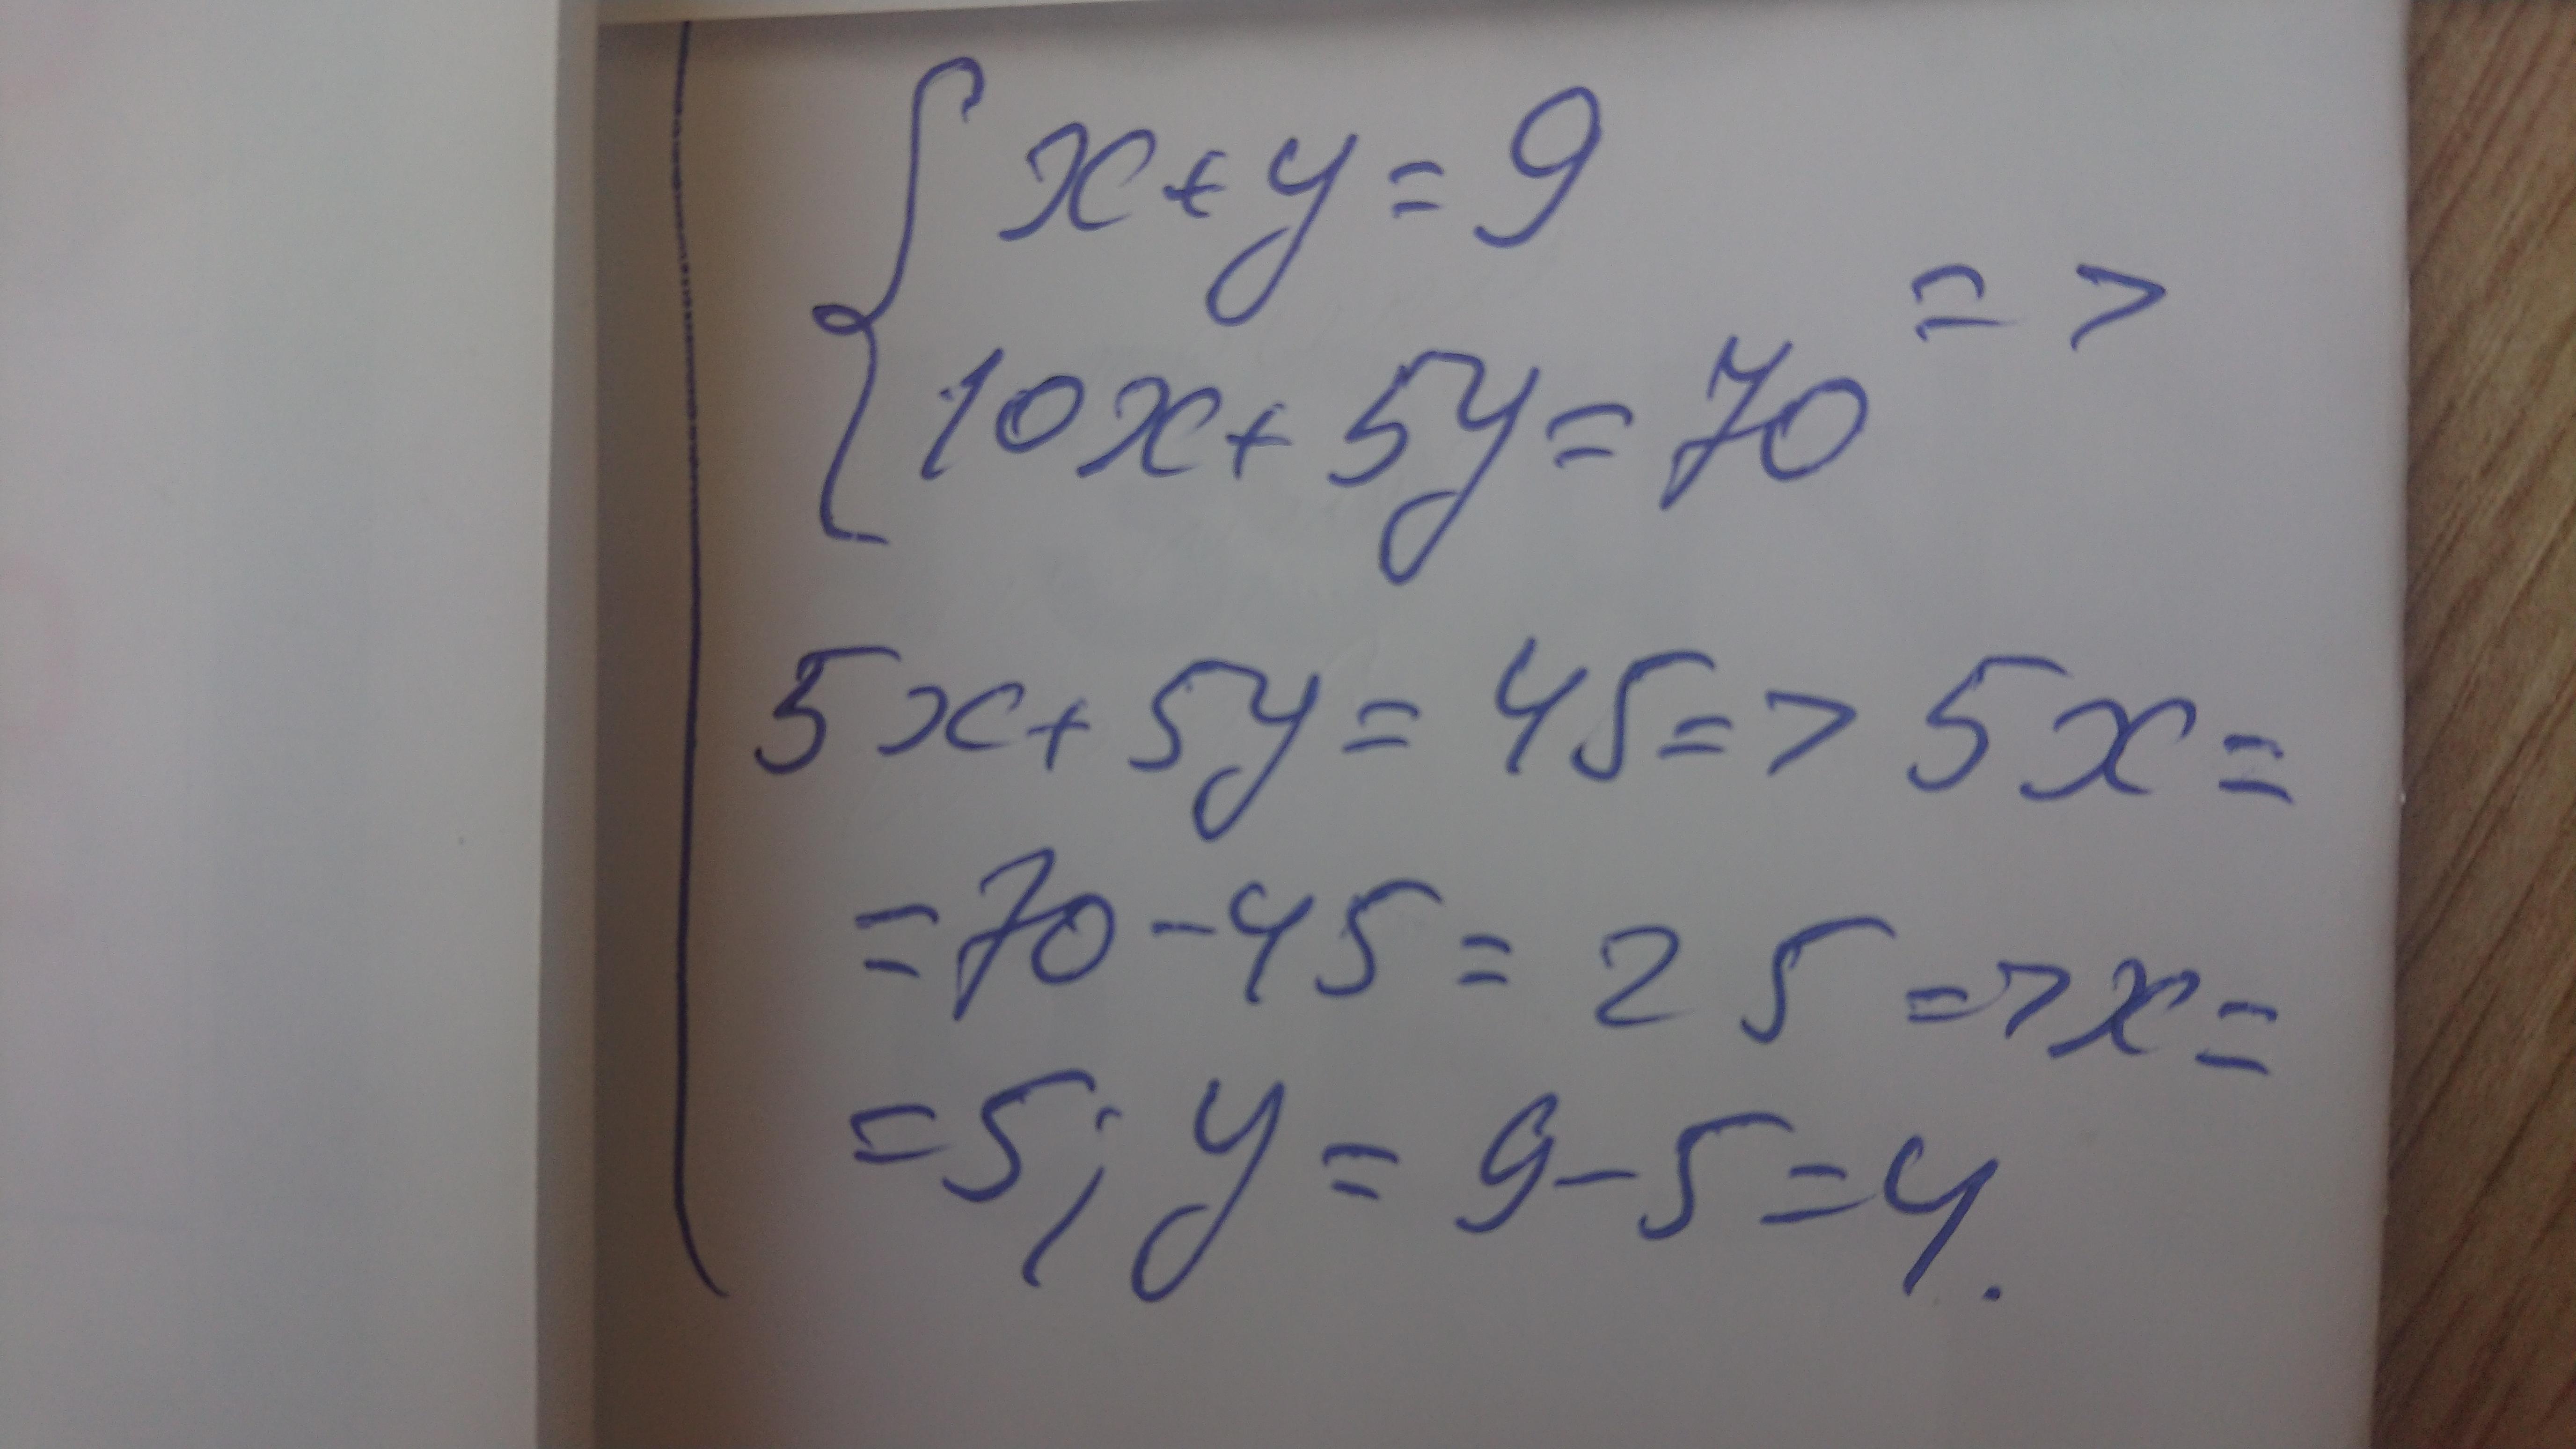 x+y=9
=>
10x+5y=70
5x+5y=45=>5x=
=70-45=25=>x=
=5; y=9-5=4.